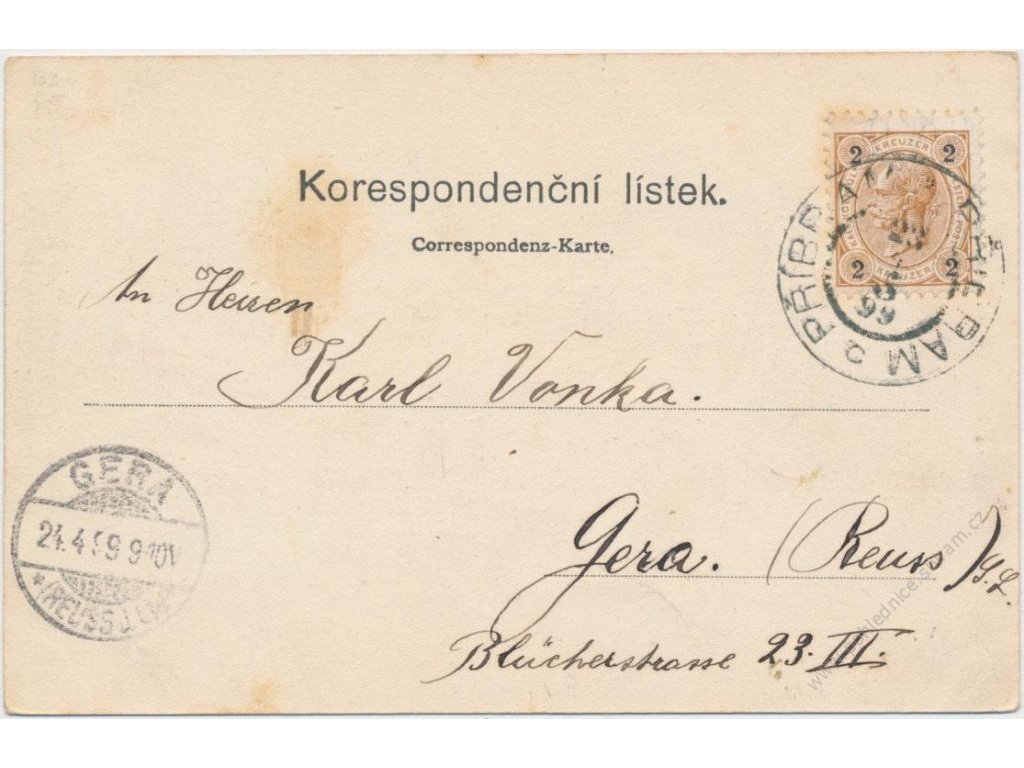 Korespondenční lístek.
Correspondenz-Karte.
2 KREUZER 2
2 KREUZER 2
PŘÍBRAM PŘIBRAM 2
23
4
99
An Herren
Karl Vonka.
GERA
24.4.99 9-10V
*(REUSS J.L.)*
Gera. (Reuss) J. L.
Blücherstrasse 23. III.